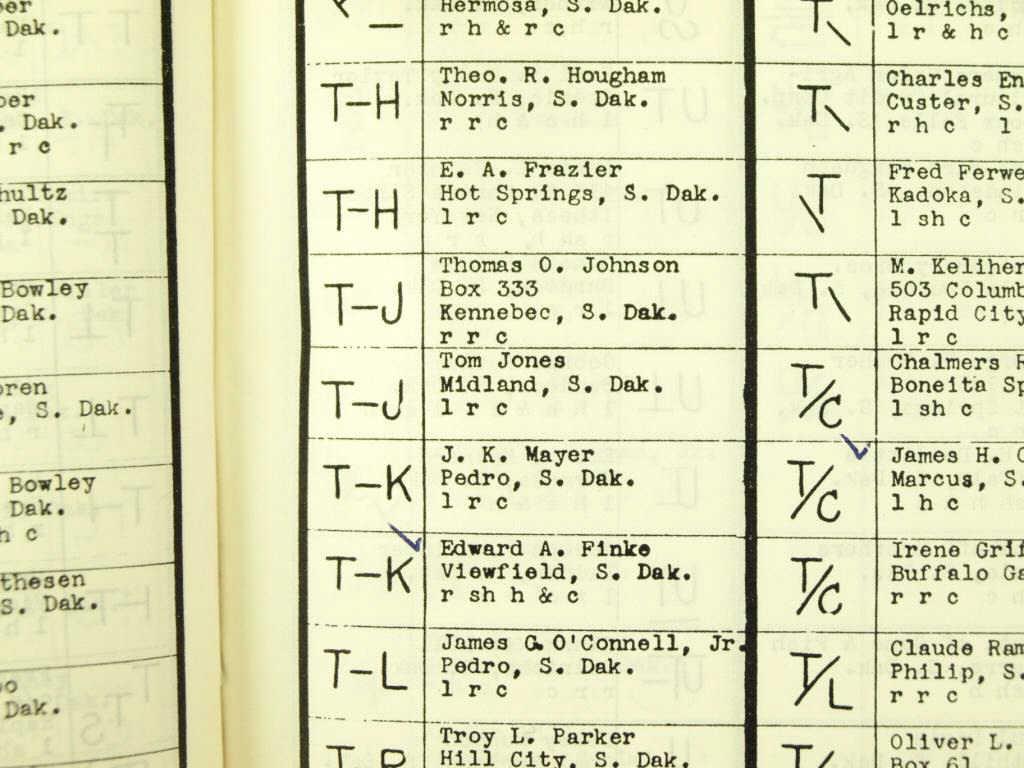 Dak.
S. Dak.
r c
hultz
Dak.
Bowley
Dak.
oren
S. Dak.
Bowley
Dak.
h c
thesen
S. Dak.
Dak.
Hermosa, S. Dak.
r h & r c
T-H
Theo. R. Hougham
Norris, S. Dak.
r r c
T-H
E. A. Frazier
Hot Springs, S. Dak.
l r c
T-J
Thomas O. Johnson
Box 333
Kennebec, S. Dak.
r r c
T-J
Tom Jones
Midland, S. Dak.
l r c
T-K
J. K. Mayer
Pedro, S. Dak.
l r c
T-K
Edward A. Finke
Viewfield, S. Dak.
r sh h & c
T-L
James G. O'Connell, Jr.
Pedro, S. Dak.
l r c
Troy L. Parker
Hill City, S. Dak.
T\
Oelrichs,
l r & h c
T\
Charles En
Custer, S.
r h c l
\T
Fred Ferwe
Kadoka, S.
l sh c
T\
M. Keliher
503 Columb
Rapid City
l r c
T/C
Chalmers R
Boneita Sp
l sh c
T/C
James H. C
Marcus, S.
l h c
T/C
Irene Grif
Buffalo Ga
r r c
T/L
Claude Ram
Philip, S.
r r c
Oliver L.
Box 61